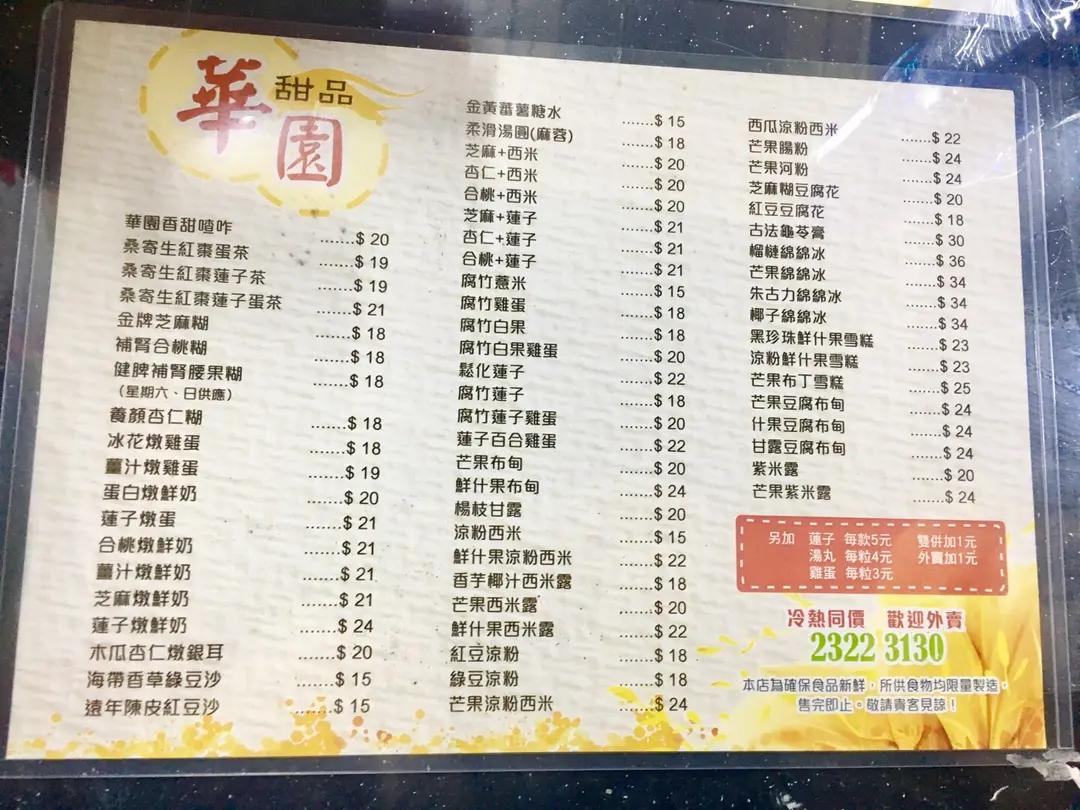 華園 甜品
華園香甜喳咋 ........$ 20
桑寄生紅棗蛋茶 ........$ 19
桑寄生紅棗蓮子茶 ........$ 19
桑寄生紅棗蓮子蛋茶 ........$ 21
金牌芝麻糊 ........$ 18
補腎合桃糊 ........$ 18
健脾補腎腰果糊 ........$ 18
(星期六、日供應)
養顏杏仁糊 ........$ 18
冰花燉雞蛋 ........$ 18
薑汁燉雞蛋 ........$ 19
蛋白燉鮮奶 ........$ 20
蓮子燉蛋 ........$ 21
合桃燉鮮奶 ........$ 21
薑汁燉鮮奶 ........$ 21
芝麻燉鮮奶 ........$ 21
蓮子燉鮮奶 ........$ 24
木瓜杏仁燉銀耳 ........$ 20
海帶香草綠豆沙 ........$ 15
遠年陳皮紅豆沙 ........$ 15
金黃蕃薯糖水 ......$ 15
柔滑湯圓(麻蓉) ......$ 18
芝麻+西米 ......$ 20
杏仁+西米 ......$ 20
合桃+西米 ......$ 20
芝麻+蓮子 ......$ 21
杏仁+蓮子 ......$ 21
合桃+蓮子 ......$ 21
腐竹薏米 ......$ 15
腐竹雞蛋 ......$ 18
腐竹白果 ......$ 18
腐竹白果雞蛋 ......$ 20
鬆化蓮子 ......$ 22
腐竹蓮子 ......$ 18
腐竹蓮子雞蛋 ......$ 20
蓮子百合雞蛋 ......$ 22
芒果布甸 ......$ 20
鮮什果布甸 ......$ 24
楊枝甘露 ......$ 20
涼粉西米 ......$ 15
鮮什果涼粉西米 ......$ 22
香芋椰汁西米露 ......$ 18
芒果西米露 ......$ 20
鮮什果西米露 ......$ 22
紅豆涼粉 ......$ 18
綠豆涼粉 ......$ 18
芒果涼粉西米 ......$ 24
西瓜涼粉西米 .......$ 22
芒果腸粉 .......$ 24
芒果河粉 .......$ 24
芝麻糊豆腐花 .......$ 20
紅豆豆腐花 .......$ 18
古法龜苓膏 .......$ 30
榴槤綿綿冰 .......$ 36
芒果綿綿冰 .......$ 34
朱古力綿綿冰 .......$ 34
椰子綿綿冰 .......$ 34
黑珍珠鮮什果雪糕 .......$ 23
涼粉鮮什果雪糕 .......$ 23
芒果布丁雪糕 .......$ 25
芒果豆腐布甸 .......$ 24
什果豆腐布甸 .......$ 24
甘露豆腐布甸 .......$ 24
紫米露 .......$ 20
芒果紫米露 .......$ 24
另加 蓮子 每款5元 雙併加1元
湯丸 每粒4元 外賣加1元
雞蛋 每粒3元
冷熱同價 歡迎外賣
2322 3130
本店為確保食品新鮮，所供食物均限量製造，
售完即止。敬請貴客見諒！